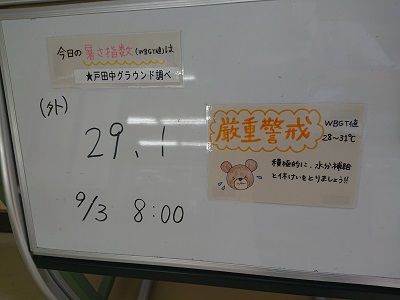 今日の暑さ指数(WBGT値)は
★戸田中グラウンド調べ
(外)
29.1
9/3 8:00
厳重警戒
WBGT値
28~31℃
積極的に、水分補給
と休けいをとりましょう!!